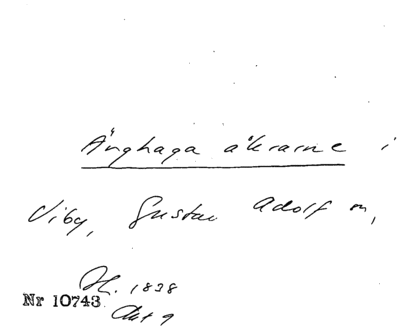 Änghaga åkrarne i
Viby, Gustav Adolf m,
H. 1838
Nr 10743
Akt 9